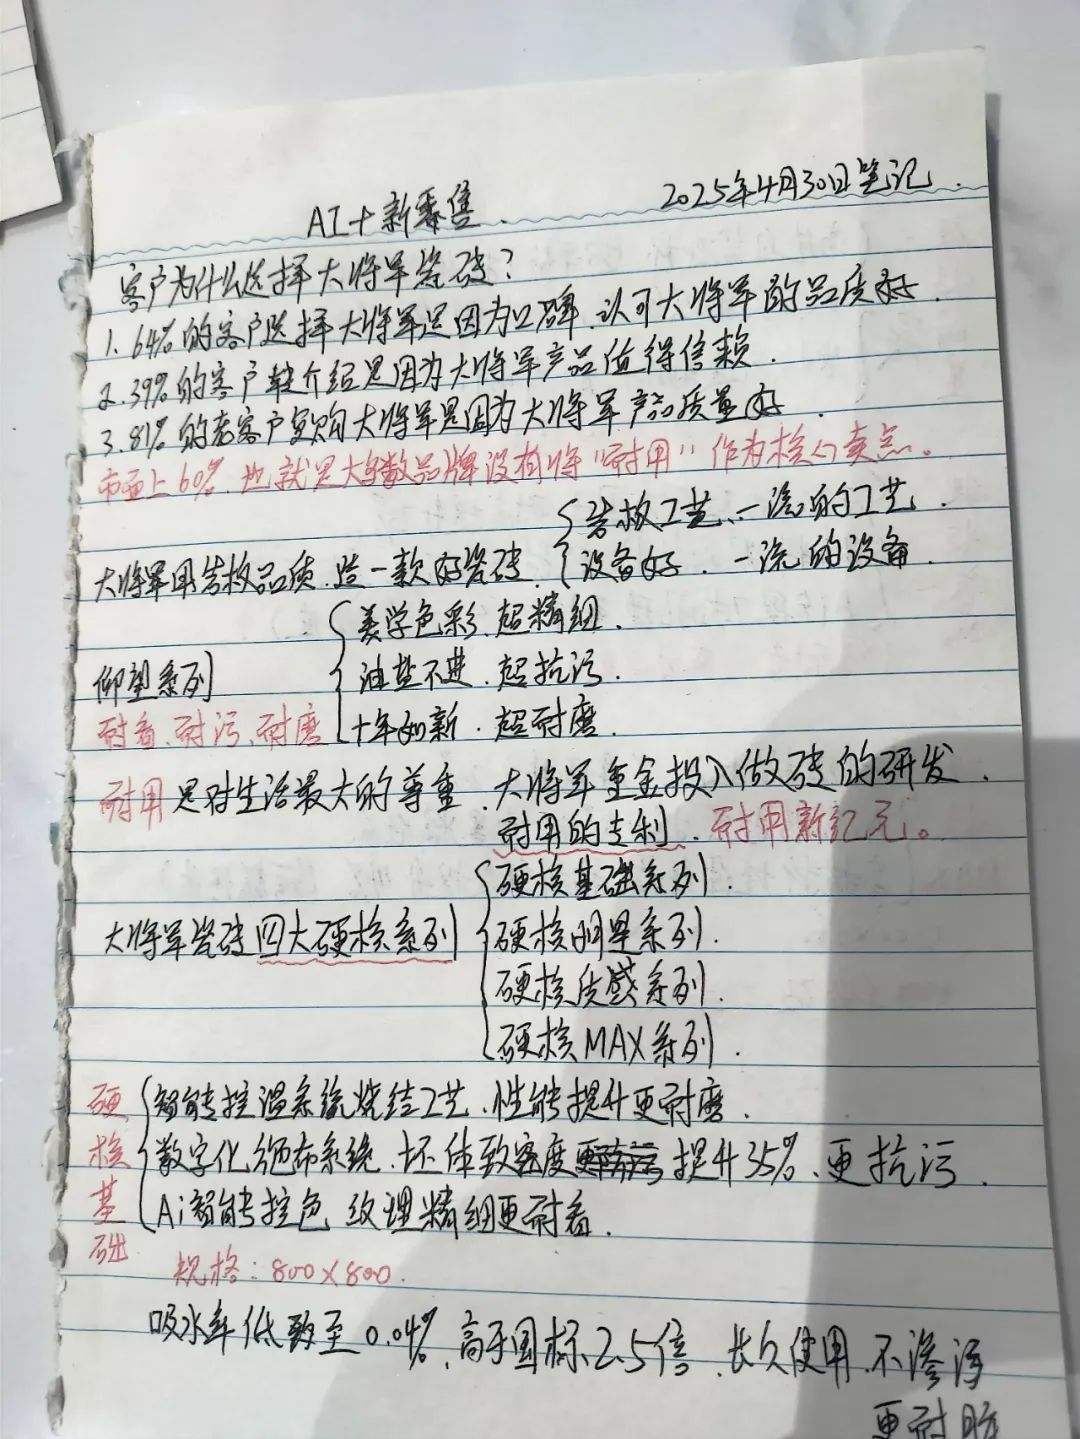 AI+新零售. 2025年4月30日笔记.
客户为什么选择大将军瓷砖?
1. 64%的客户选择大将军是因为口碑、认可大将军的品质好.
2. 39%的客户转介绍是因为大将军产品值得信赖.
3. 81%的老客户复购大将军是因为大将军产品质量好.
市面上60%、也就是大多数品牌没有将“耐用”作为核心卖点。
岩板工艺、一流的工艺.
大将军用岩板品质、造一款好瓷砖. 设备好. 一流的设备.
美学色彩、超精细.
仰望系列 油盐不进、超抗污.
耐看、耐污、耐磨 十年如新. 超耐磨.
耐用是对生活最大的尊重、大将军重金投入做砖的研发.
耐用的专利、耐用新纪元。
硬核基础系列.
大将军瓷砖四大硬核系列 硬核明星系列.
硬核质感系列.
硬核MAX系列.
硬核基础
智能控温系统烧结工艺、性能提升更耐磨.
数字化布系统、坯体致密度提升35%、更抗污.
Ai智能控色 纹理精细更耐看.
规格:800×800.
吸水率低致至0.04%、高于国标2.5倍、长久使用、不渗污
更耐脏